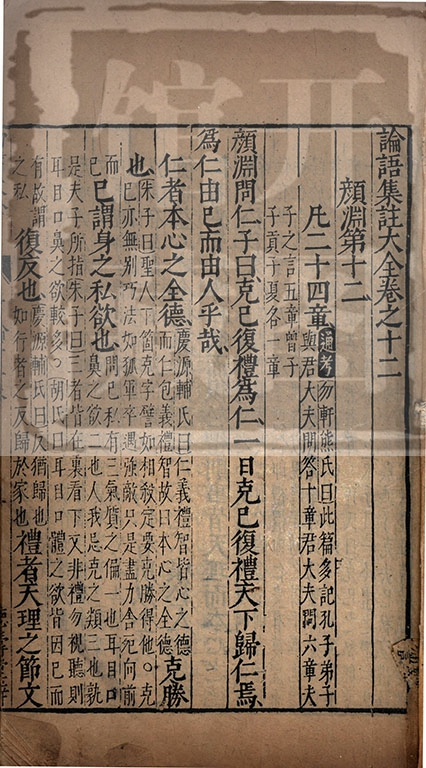 論語集註大全卷之十二
顔淵第十二
凡二十四章
通考
勿軒熊氏曰此篇多記孔子弟子
與君大夫問答十章君大夫問六章夫
子之言五章曾子
子貢子夏各一章
顔淵問仁子曰克己復禮爲仁一日克己復禮天下歸仁焉
爲仁由己而由人乎哉
仁者本心之全德
慶源輔氏曰仁義禮智皆心之德
而仁包義禮智故曰本心之全德
克勝
也
朱子曰聖人下箇克字譬如相殺定要克勝得他○克
己亦無別巧法如孤軍卒遇強敵只是盡力舍死向前
而
已
己謂身之私欲也
問己私有三氣質之偏一也耳目口
鼻之欲二也人我忌克之類三也孰
是夫子所指朱子曰三者皆在裏看下文非禮勿視聽則
耳目口鼻之欲較多○胡氏曰耳目口體之欲皆因己而
有故謂
之私
復反也
慶源輔氏曰反猶歸也
如行者之反歸於家也
禮者天理之節文